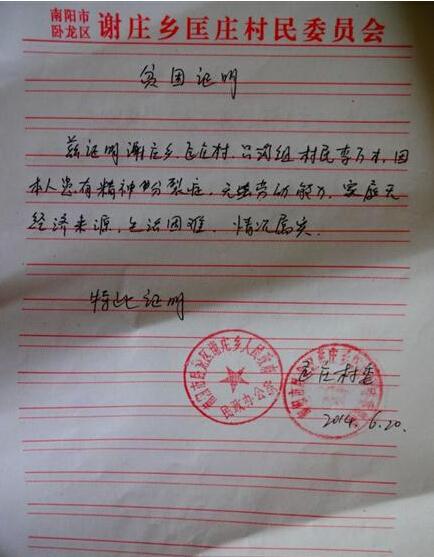 南阳市
卧龙区 谢庄乡匡庄村民委员会
贫困证明
兹证明谢庄乡匡庄村 组村民李万 因
本人患有精神份裂症，无 劳动能力，家庭无
经济来源，生活困难，情况属实。
特此证明
南阳市卧龙区谢庄乡人民政府
民政办公室
匡庄村委
2014.6.20.